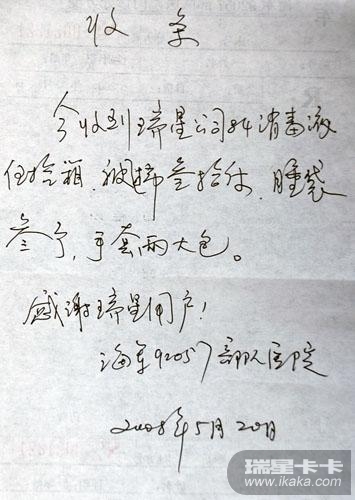 收条
今收到瑞星公司84消毒液
伍拾箱、被褥叁拾件、睡袋
叁个,手套两大包。
感谢瑞星用户!
海军92057部队医院
2008年5月20日
瑞星卡卡
www.ikaka.com